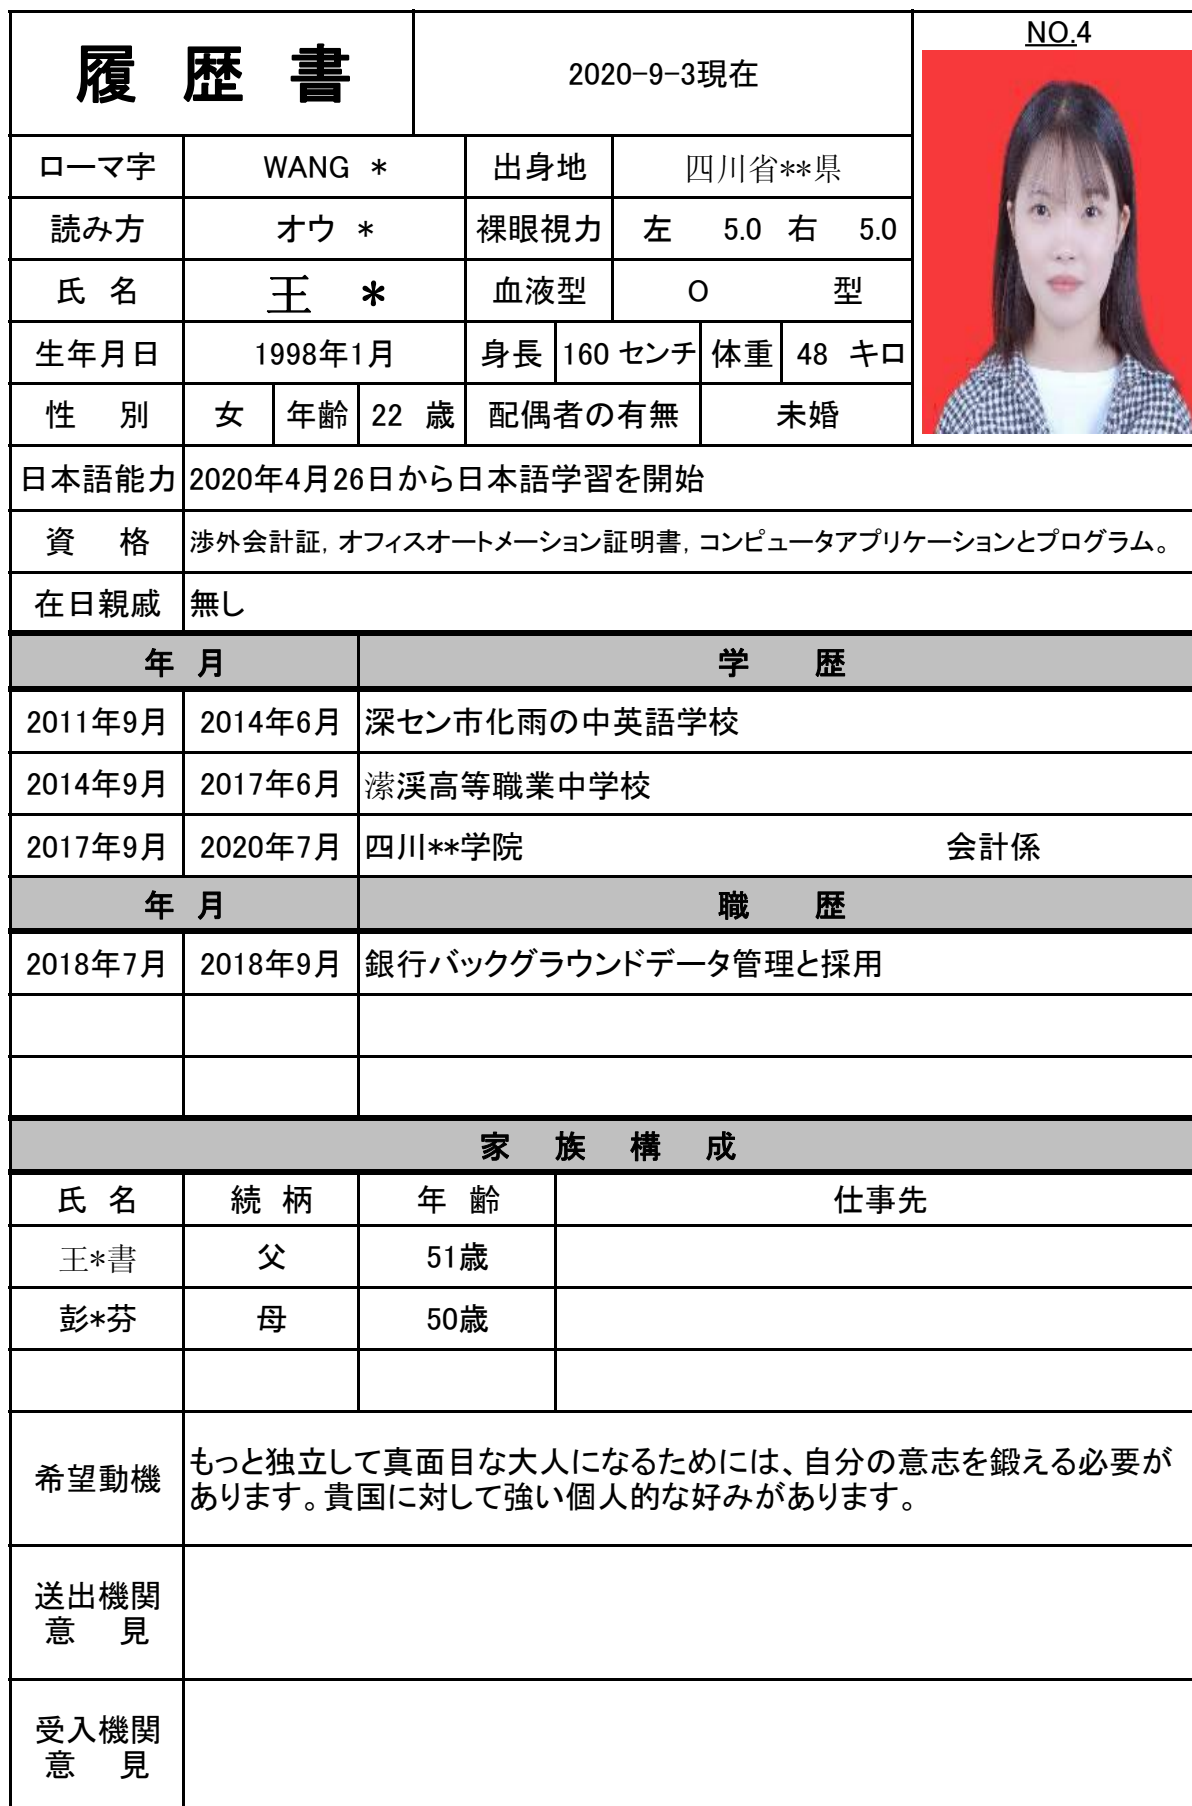 履 歴 書
2020-9-3現在
NO.4
ローマ字 WANG * 出身地 四川省**県
読み方 オウ * 裸眼視力 左 5.0 右 5.0
氏 名 王 * 血液型 O 型
生年月日 1998年1月 身長 160 センチ 体重 48 キロ
性 別 女 年齢 22 歳 配偶者の有無 未婚
日本語能力 2020年4月26日から日本語学習を開始
資 格 渉外会計証, オフィスオートメーション証明書, コンピュータアプリケーションとプログラム。
在日親戚 無し
年 月 学 歴
2011年9月 2014年6月 深セン市化雨の中英語学校
2014年9月 2017年6月 潆渓高等職業中学校
2017年9月 2020年7月 四川**学院 会計係
年 月 職 歴
2018年7月 2018年9月 銀行バックグラウンドデータ管理と採用
家 族 構 成
氏 名 続 柄 年 齢 仕事先
王*書 父 51歳
彭*芬 母 50歳
希望動機 もっと独立して真面目な大人になるためには、自分の意志を鍛える必要が
あります。貴国に対して強い個人的な好みがあります。
送出機関
意 見
受入機関
意 見